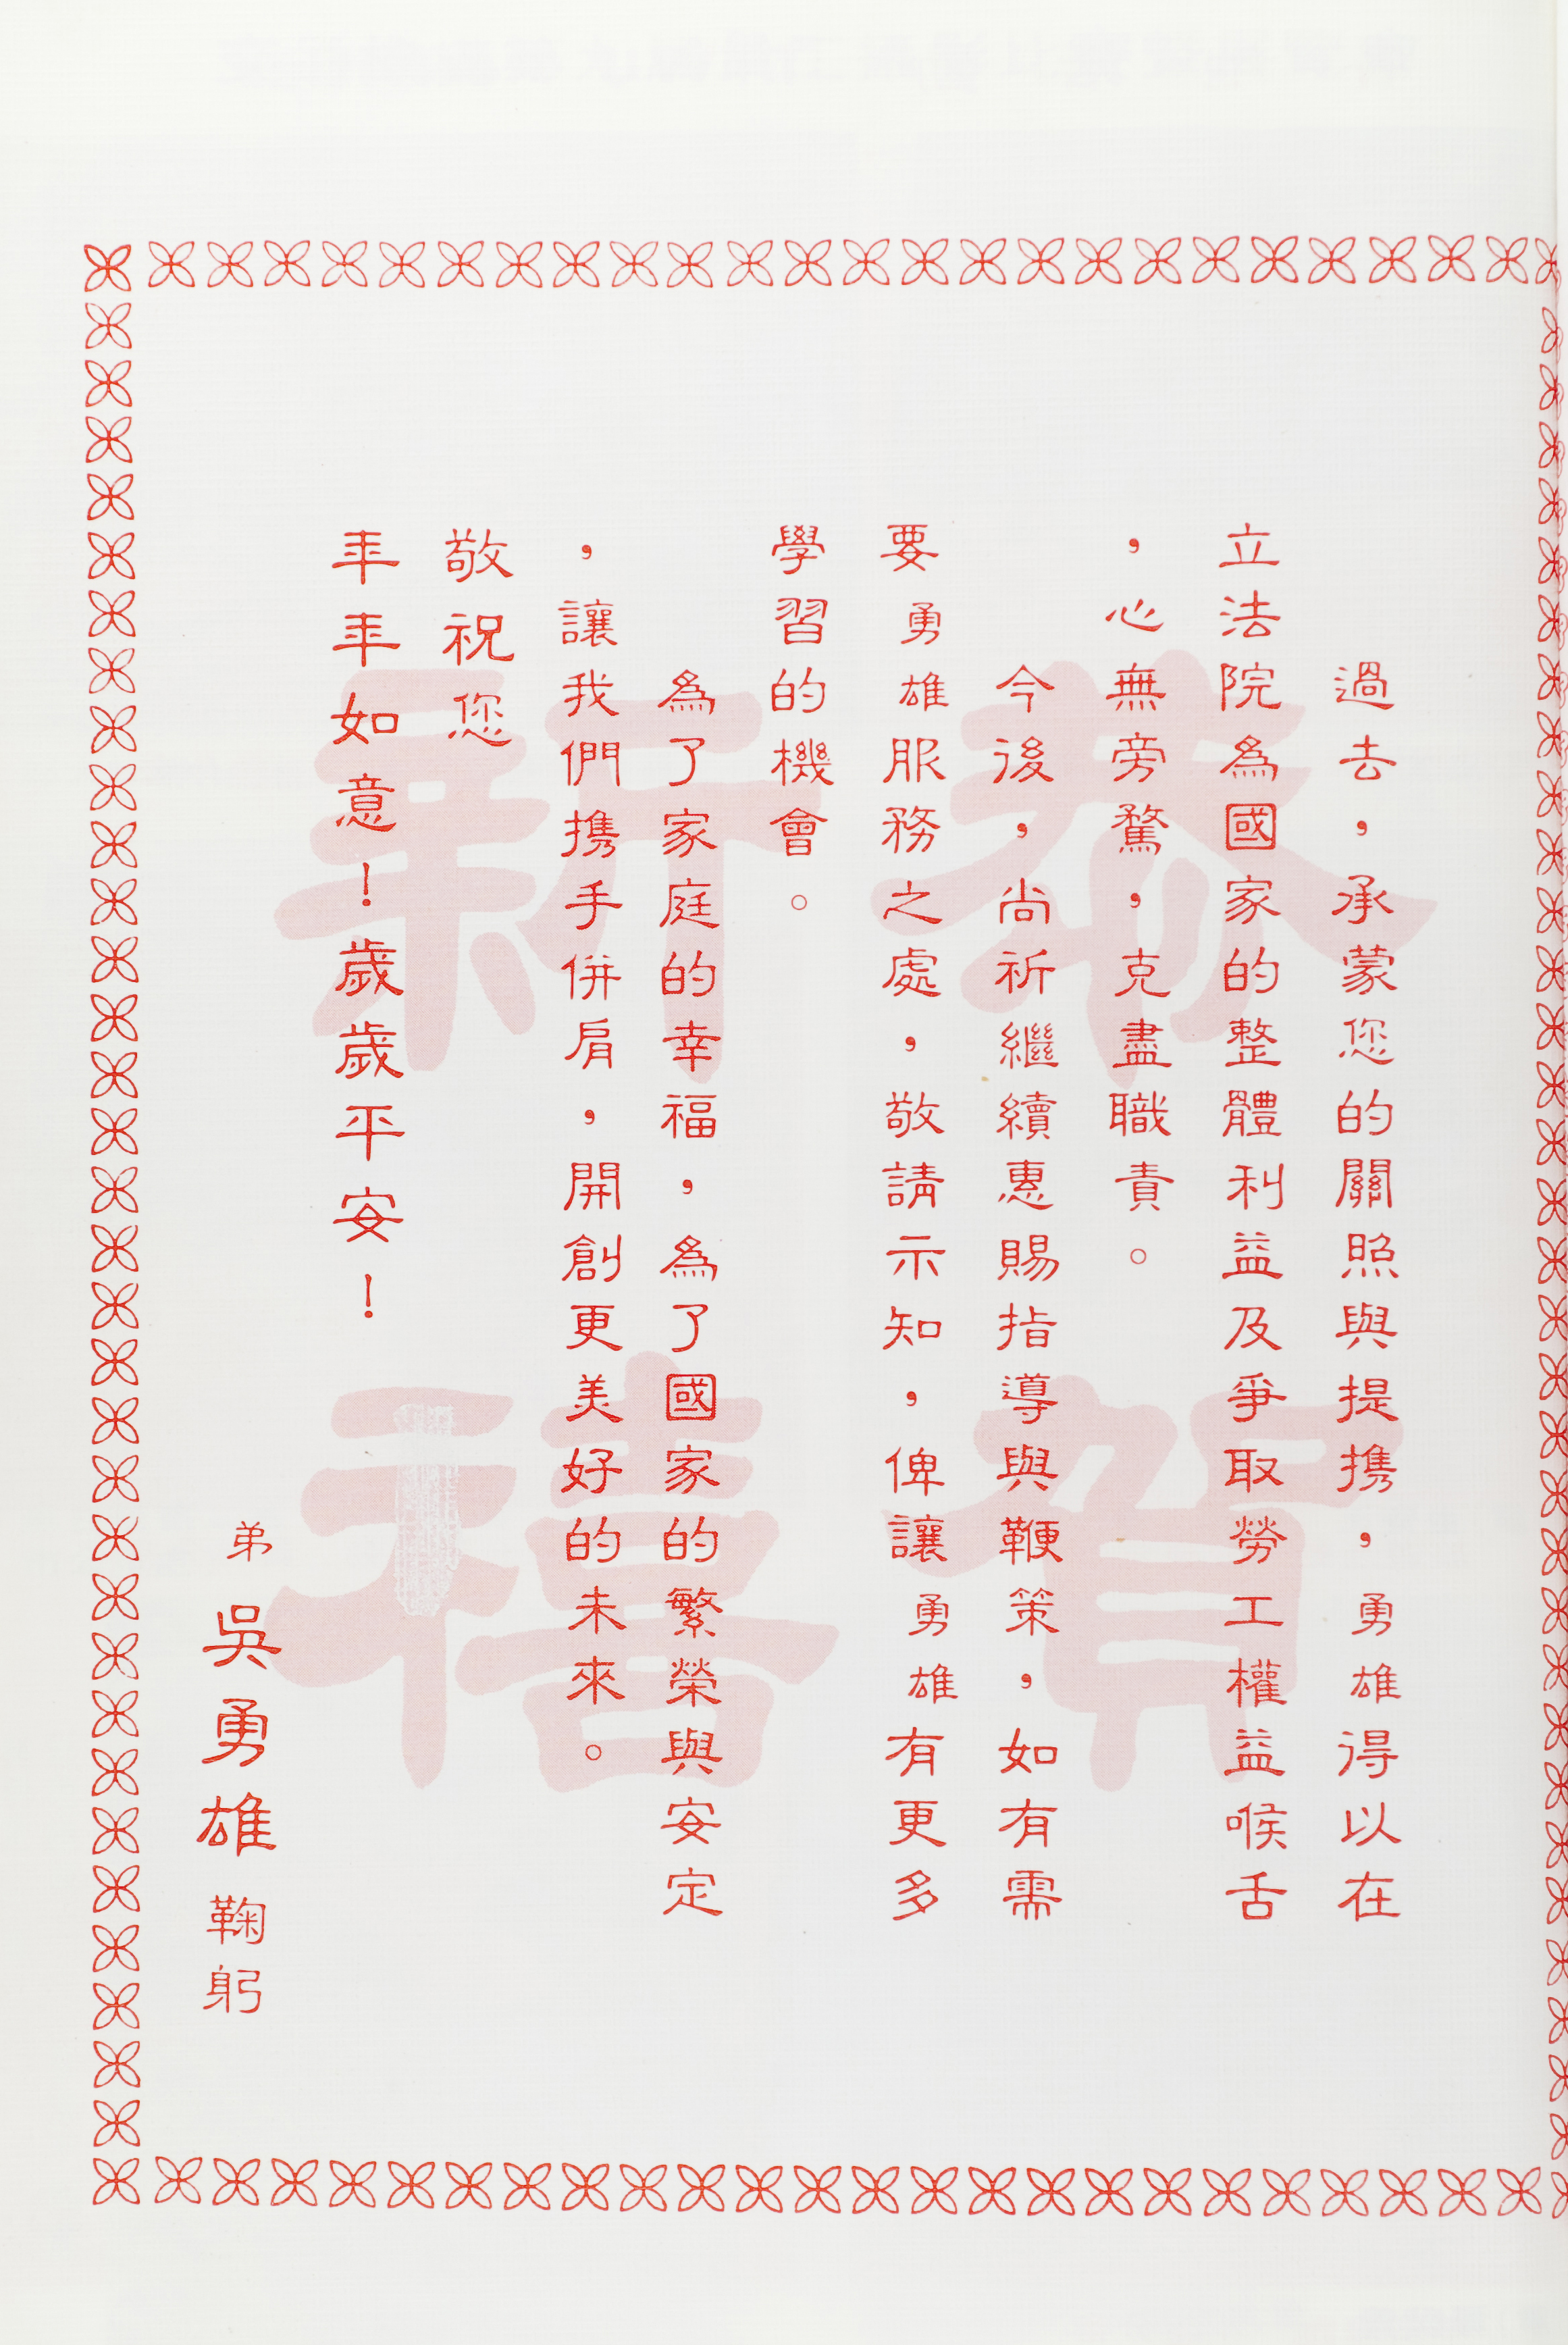 過去，承蒙您的關照與提攜，勇雄得以在
立法院為國家的整體利益及爭取勞工權益喉舌
，心無旁騖，克盡職責。
今後，尚祈繼續惠賜指導與鞭策，如有需
要勇雄服務之處，敬請示知，俾讓勇雄有更多
學習的機會。
為了家庭的幸福，為了國家的繁榮與安定
，讓我們攜手併肩，開創更美好的未來。
敬祝您
年年如意！歲歲平安！
弟吳勇雄鞠躬
恭賀
新禧